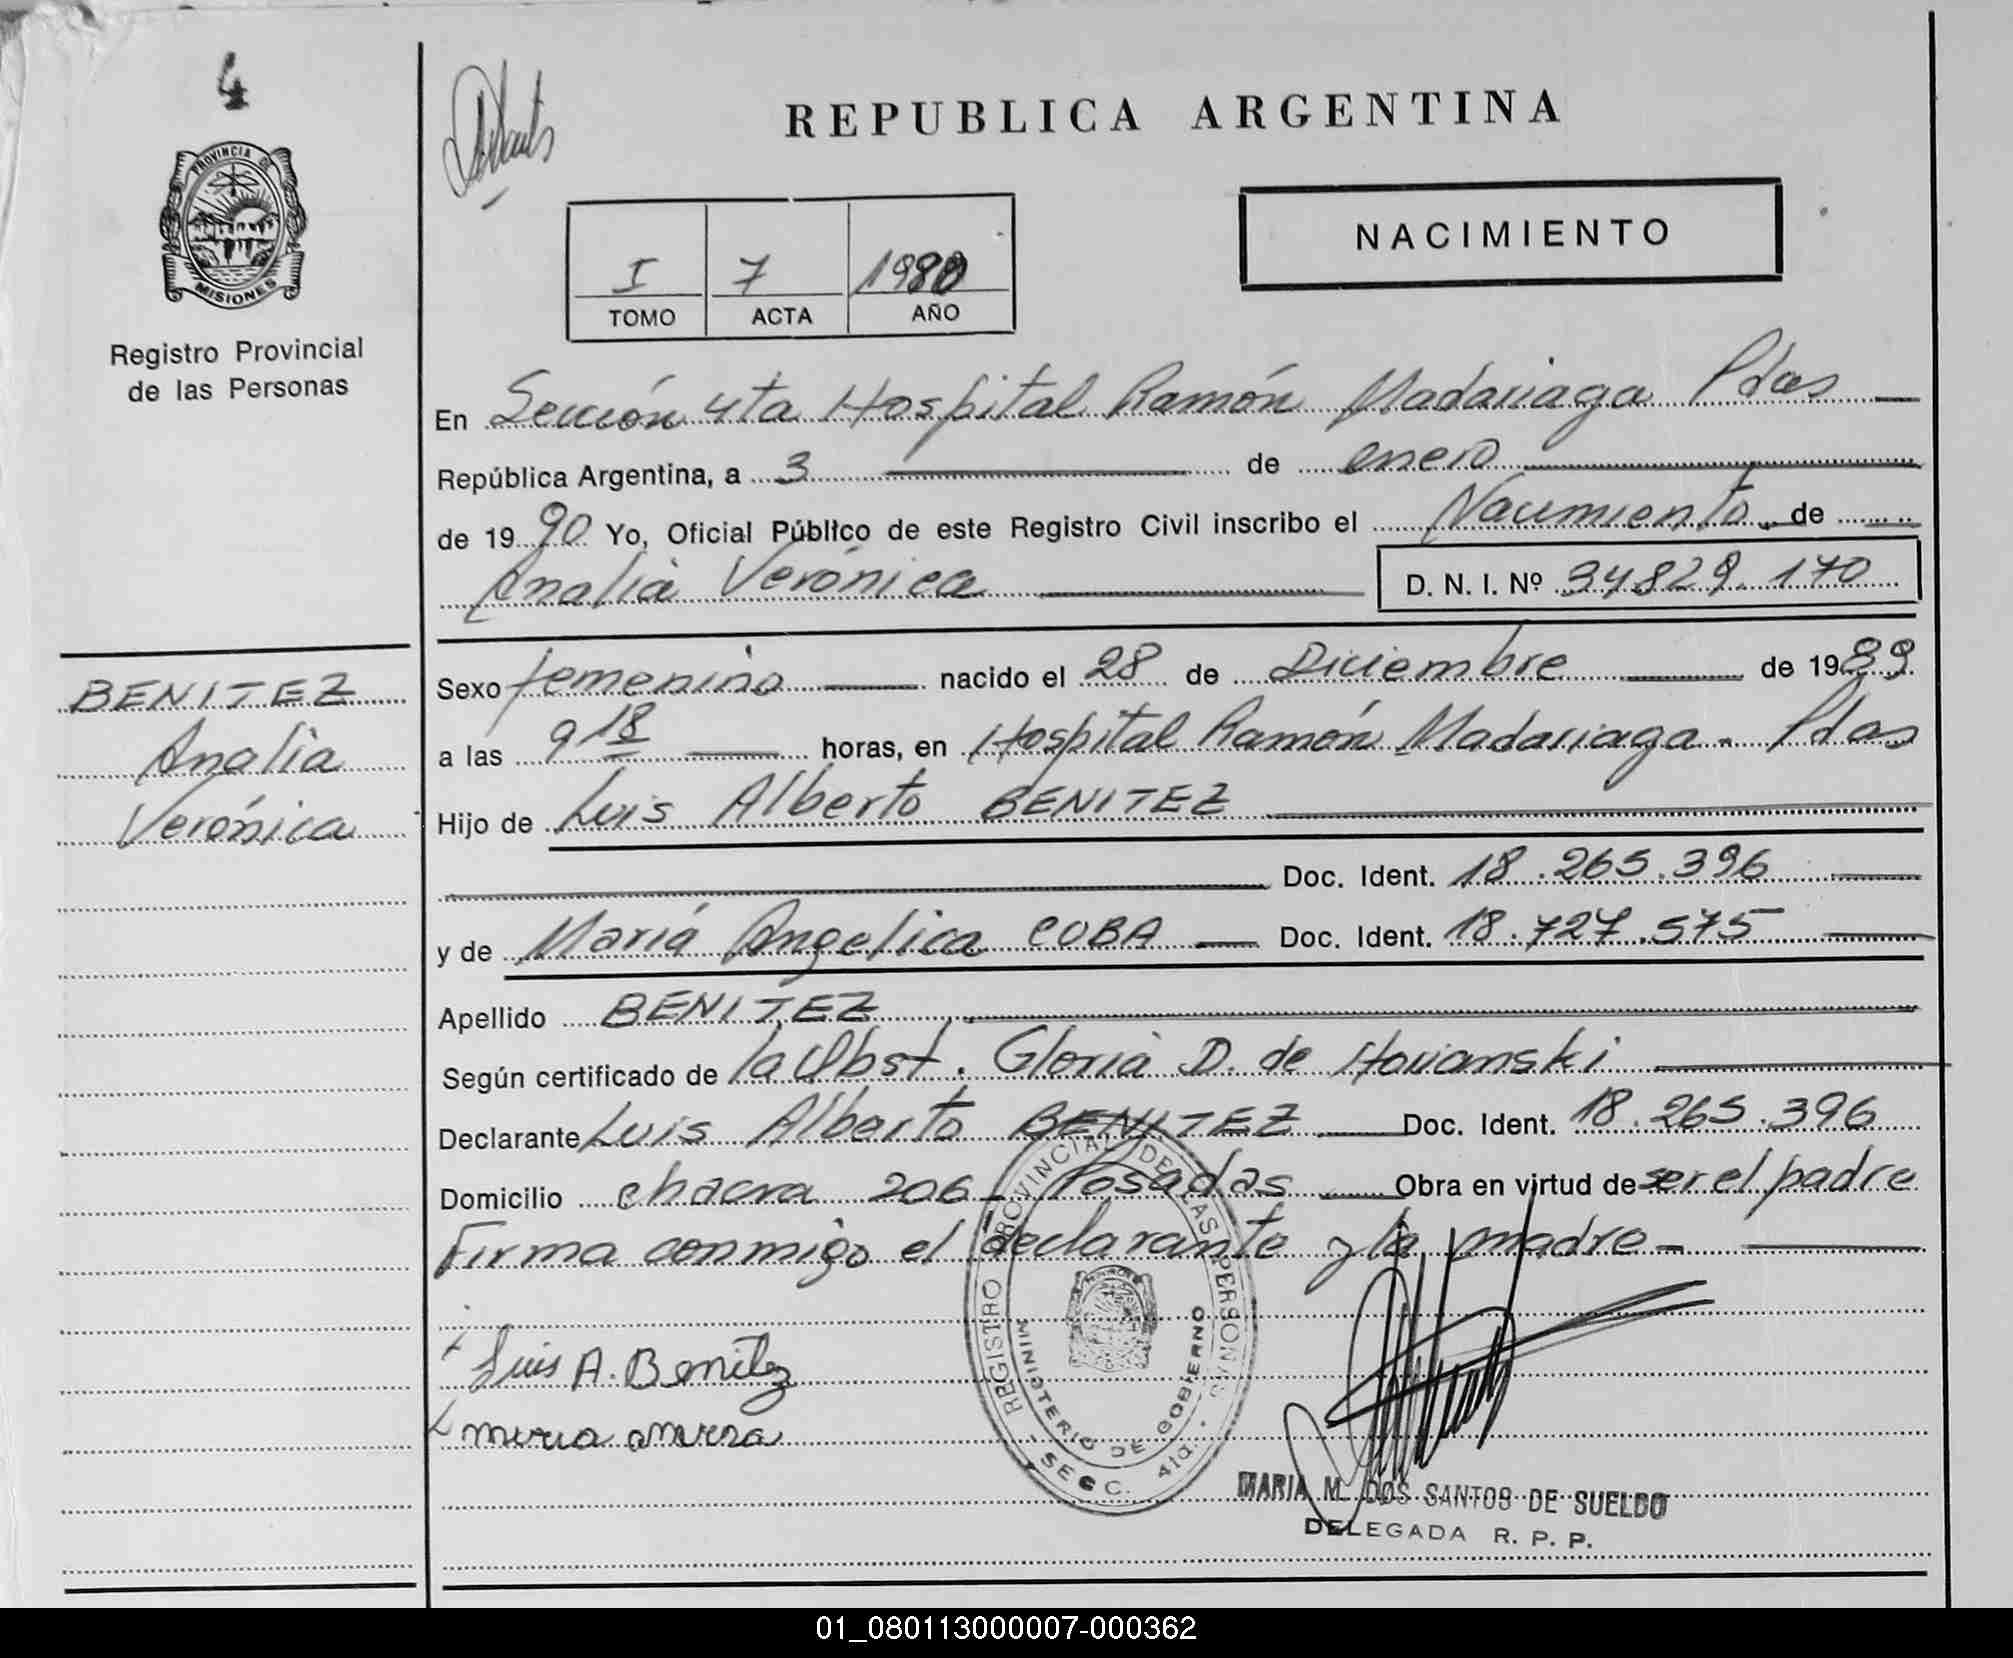 4
PROVINCIA DE
MISIONES
Registro Provincial
de las Personas
BENITEZ
Analia
Verónica
REPUBLICA ARGENTINA
NACIMIENTO
I 7
TOMO ACTA AÑO
En Sección 4ta Hospital Ramón Madariaga Pdas
República Argentina, a 3 de enero
de 1990 Yo, Oficial Público de este Registro Civil inscribo el Nacimiento de
Analia Verónica D. N. I. Nº 34829.170
Sexo femenino nacido el 28 de Diciembre de 1989
a las 9 18 horas, en Hospital Ramón Madariaga - Pdas
Hijo de Luis Alberto BENITEZ
Doc. Ident. 18.265.396
y de Maria Angelica CUBA Doc. Ident. 18.727.575
Apellido BENITEZ
Según certificado de la Obst. Gloria D. de
Declarante Luis Alberto BENITEZ Doc. Ident. 18.265.396
Domicilio chacra 206 - Posadas Obra en virtud de ser el padre
Firma conmigo el declarante y la madre -
Luis A. Benitez
REGISTRO PROVINCIAL DE LAS PERSONAS
MINISTERIO DE GOBIERNO
- SECC. 4ta. -
MARIA M. DOS SANTOS DE SUELDO
DELEGADA R. P. P.
01_080113000007-000362